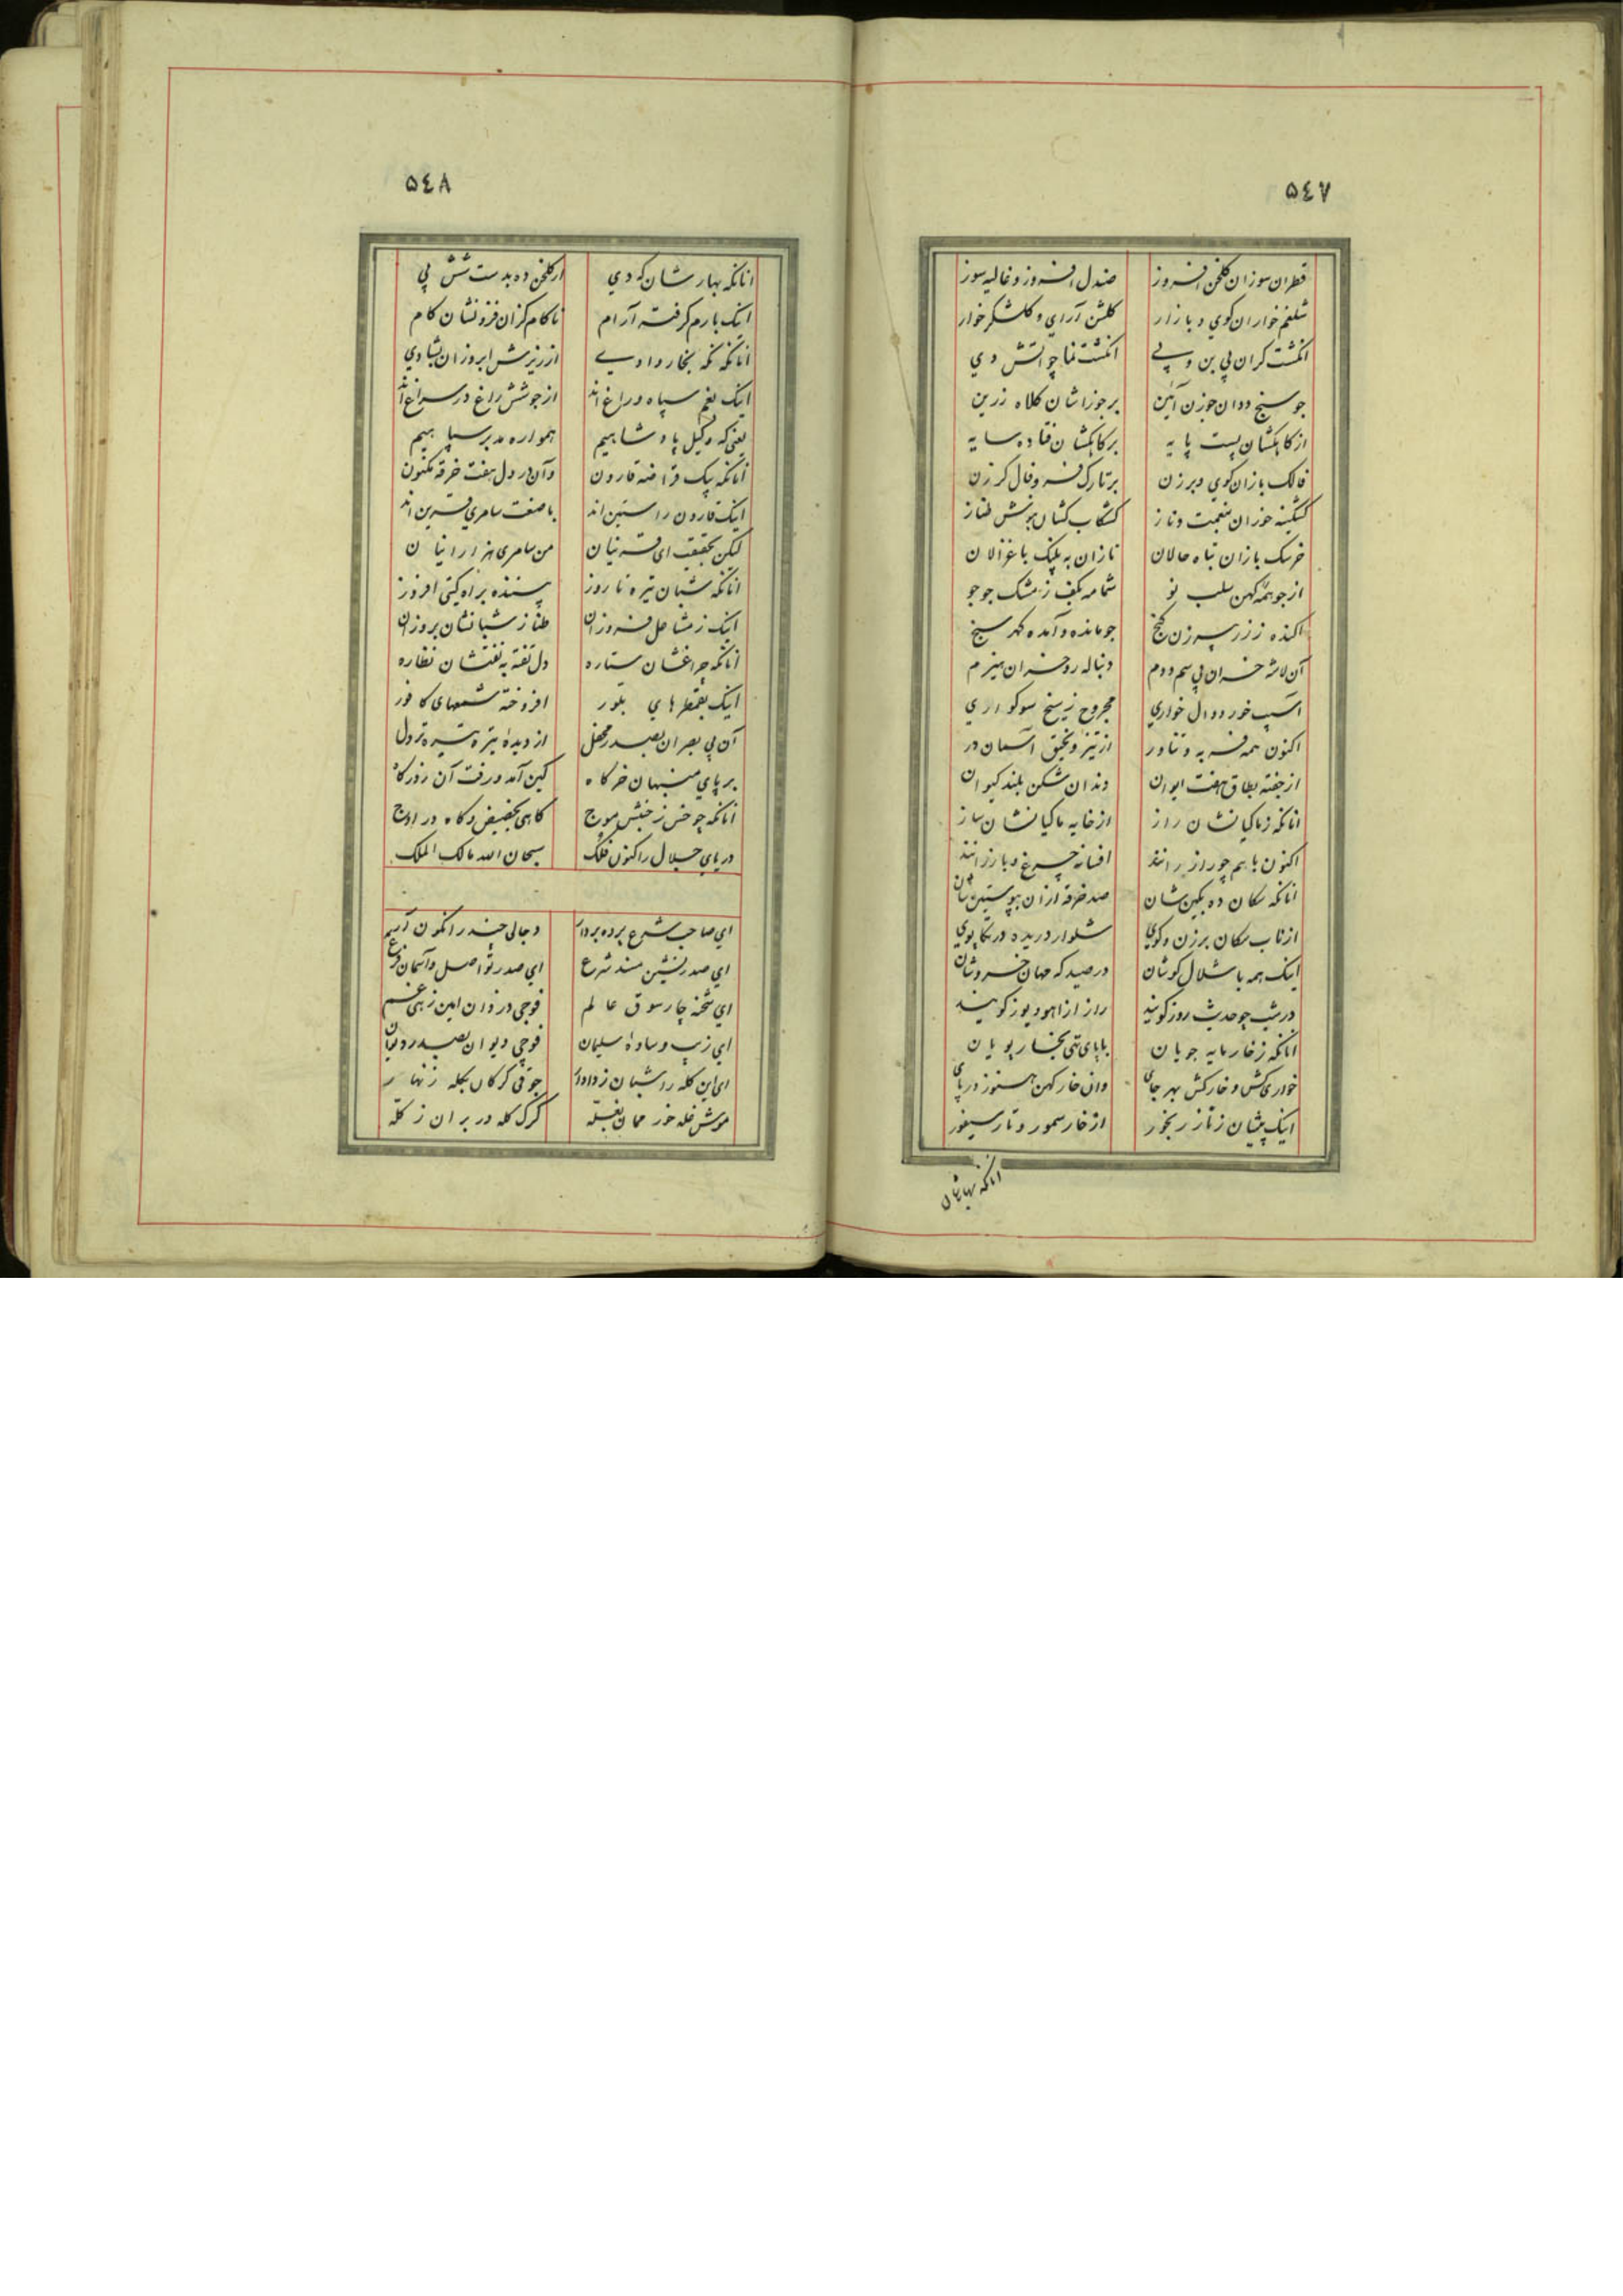 ۵۴۷
قطران سوزان گلخن افروز صندل افروز و غالیه سوز
شلغم خواران کوی و بازار گلشن آرای و گلشکر خوار
انگشت گران بی بن و پی انگشت نما چو آتش دی
جو سنج ددان جوزن آئین بر جوزاشان کلاه زرین
از کاهکشان پست پایه بر کاهکشان فتاده سایه
فالک بازان کوی و برزن بر تارک فر و فال گرزن
کشکینه خوران بنعمت و ناز کشکاب کشان طناز
خرسک بازان تباه حالان نازان به پلنگ با غزالان
از جو همه کهن سلب نو شمامه بکف ز مشک جو جو
اکنده ز زر پیرزن گنج جو مانده و آمده گهر سنج
آن لاشه خران بی سم و دم دنباله رو خران هیزم
آسیب خور دوال خواری مجروح ز سیخ سوکواری
اکنون همه فربه و تناور از تیز و نخیق آسمان در
از جفته بطاق هفت ایوان دندان شکن بلند کیوان
انانکه ز ماکیانشان راز از خایه ماکیانشان ساز
اکنون با هم چو راز رانند افسانه چرغ و باز رانند
انانکه سکان ده بکین شان صد خرقه از آن بپوستین شان
از ناب سکان برزن و کوی شلوار دریده در تکاپوی
اینک همه با شلال کوشان در صید که جهان خروشان
در شب چو حدیث روز گویند راز از آهو و یوز گویند
انانکه ز خار مایه جویان با پای تهی بخار پویان
خواری کش و خارکش بهر جای وان خار کهن هنوز در پای
اینک پشیان ز ناز رنجور از خار سمور و تار سیفور
انانکه بهارشان
۵۴۸
انانکه بهارشان که دی از گلخن ده بدست شش پی
اینک بارم گرفته آرام ناکام گزان فزونشان کام
انانکه نمه بخار وادیی از ریزش ابر وزان بشادی
اینک بغم سپاه و راغ اند از جوشش راغ در سراغ اند
یعنی که وکیل پادشاهیم همواره مدبر سپاهیم
آنانکه بیک قراضه قارون وآن در دل هفت خرقه مکنون
اینک قارون راستین اند با صنعت سامری قرین اند
لیکن بحقیقت ای قرنیان من سامری هزار ازینان
انانکه شبان تیره تا روز پسنده براه گیتی افروز
اینک ز مشاعل فروزان طناز شبانشان بروزان
آنانکه چراغشان ستاره دل تفته به نفتشان نظاره
اینک بقمطرهای بلور افروخته شمعهای کافور
آن بی بصران بصدر محفل از دیده تیره تیره تر دل
بر پای منبهان خرگاه کین آمد و رفت آن ز درگاه
انانکه چو خس ز جنبش موج گاهی بحضیض و گاه در اوج
دریای جلال را کنون فلک سبحان الله مالک الملک
ای صاحب شرع پرده بردار دجالی چند را نگون آر
ای صدر نشین مسند شرع ای صدر تو اصل و آسمان فرع
ای شحنه چارسوق عالم فوجی دزدان امین زهی غم
ای زیب و ساده سلیمان فوجی دیوان بصدر دیوان
ای این گله را شبان ز دادار جوقی گرگان بگله زنهار
موش غله خور ممان بغله گرگ گله در بران ز گله